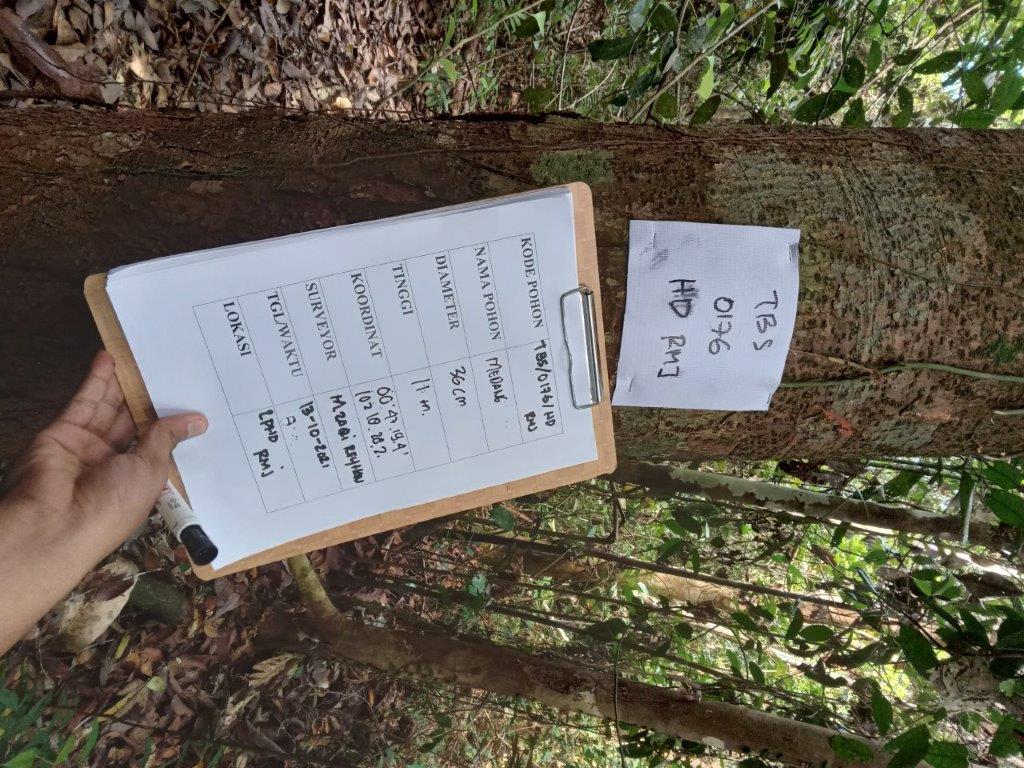 TBS
0176
HD RMJ
KODE POHON TBS/0176/HD
RMJ
NAMA POHON MEDANG
DIAMETER 36 CM
TINGGI 11 m.
KOORDINAT 00°47'.19.4'
102.18.28.2.
SURVEYOR M. ZAQI REYHAN
TGL/WAKTU 13-10-2021
LOKASI LPHD
RMJ